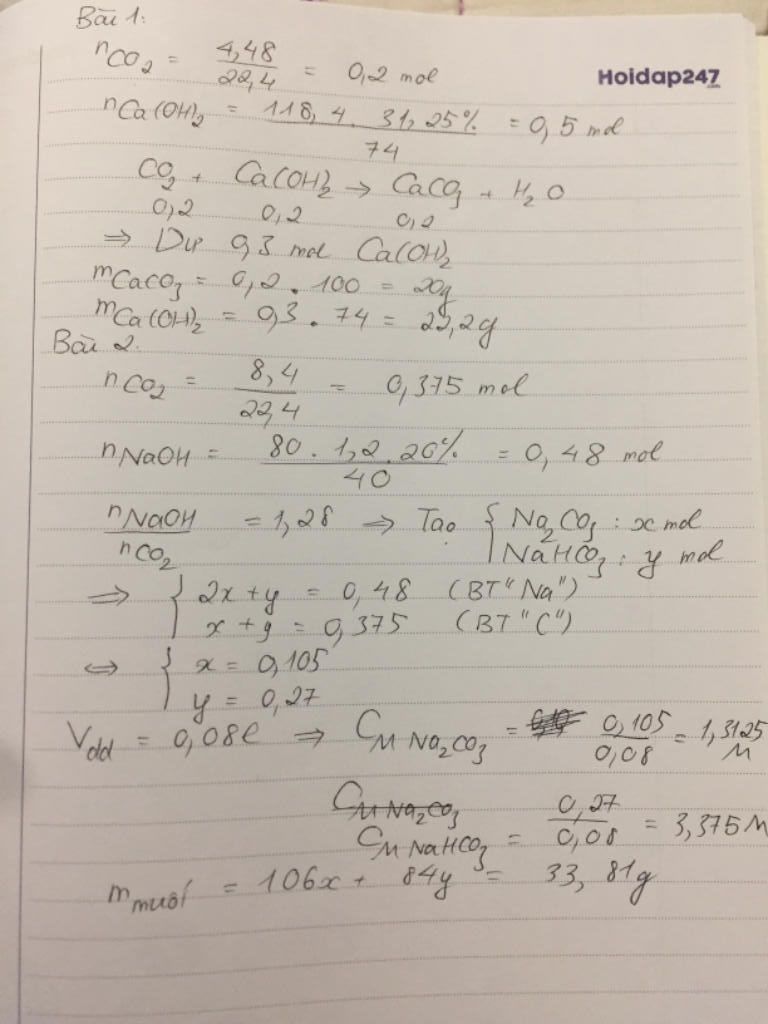 Bài 1:
nCO₂ = 4,48/22,4 = 0,2 mol
Hoidap247.com
nCa(OH)₂ = 118,4 . 31,25%/74 = 0,5 mol
CO₂ + Ca(OH)₂ → CaCO₃ + H₂O
0,2 0,2 0,2
⇒ Dư 0,3 mol Ca(OH)₂
mCaCO₃ = 0,2 . 100 = 20g
mCa(OH)₂ = 0,3 . 74 = 22,2g
Bài 2:
nCO₂ = 8,4/22,4 = 0,375 mol
nNaOH = 80 . 1,2 . 20%/40 = 0,48 mol
nNaOH/nCO₂ = 1,28 ⇒ Tạo { Na₂CO₃ : x mol
NaHCO₃ : y mol
⇒ { 2x + y = 0,48 (BT "Na")
x + y = 0,375 (BT "C")
⇔ { x = 0,105
y = 0,27
Vdd = 0,08l ⇒ CM Na₂CO₃ = 0,105/0,08 = 1,3125 M
CM Na₂CO₃
CM NaHCO₃ = 0,27/0,08 = 3,375M
m muối = 106x + 84y = 33,81g